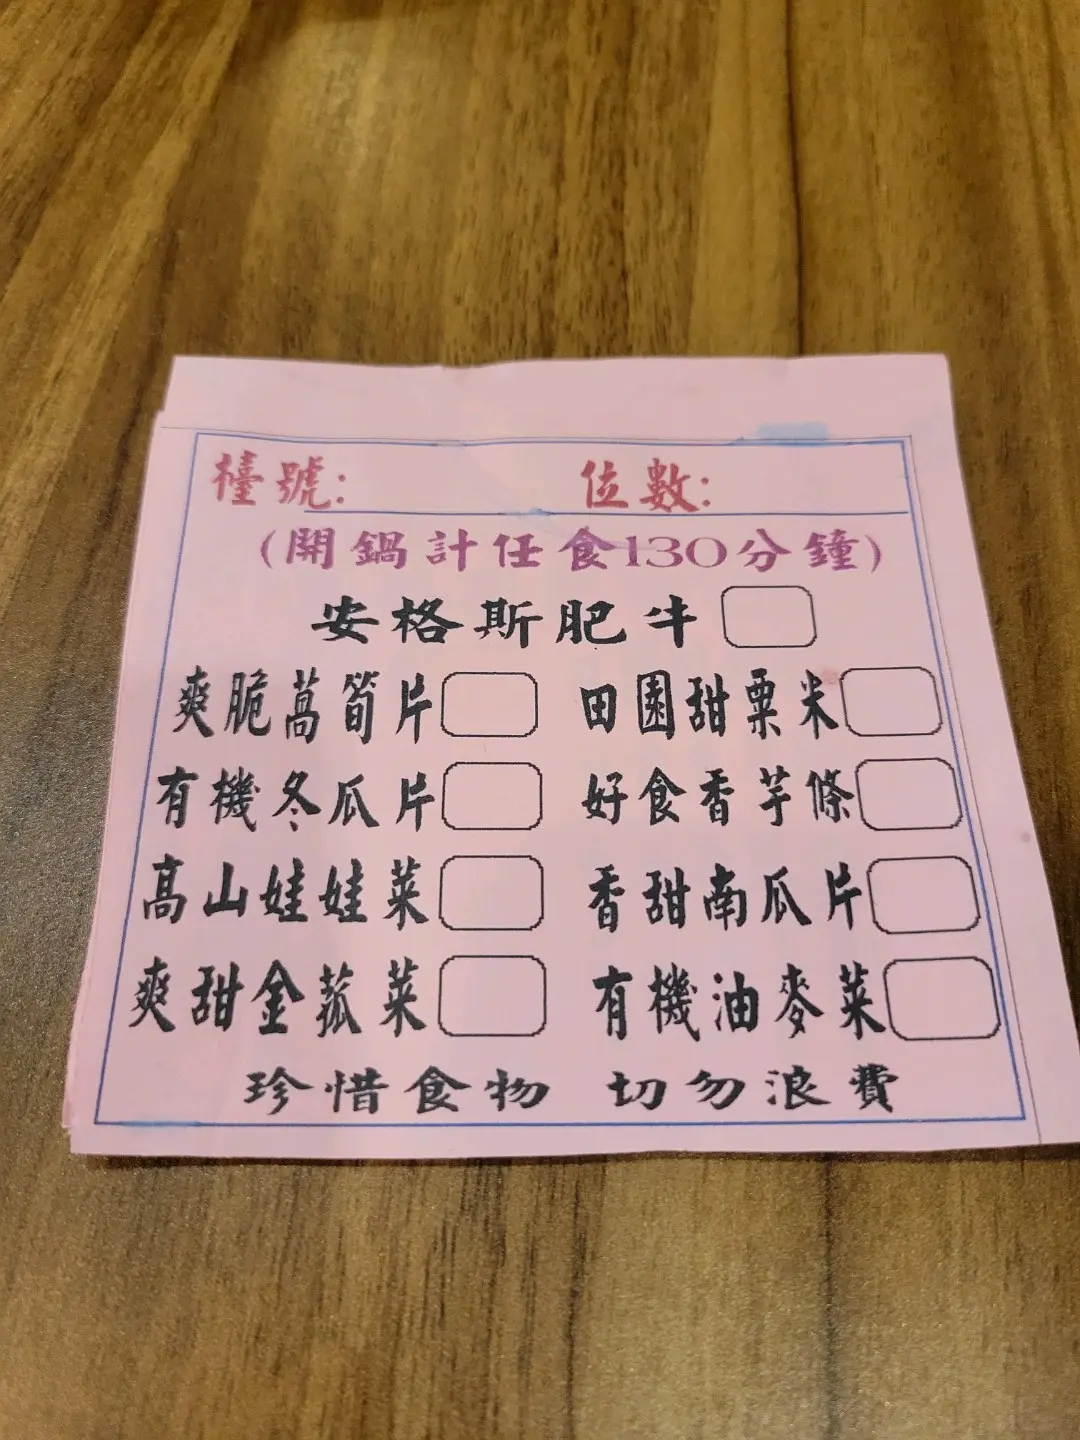 檯號: 位數:
(開鍋計任食130分鐘)
安格斯肥牛
爽脆萵筍片 田園甜粟米
有機冬瓜片 好食香芋條
高山娃娃菜 香甜南瓜片
爽甜金菰菜 有機油麥菜
珍惜食物 切勿浪費